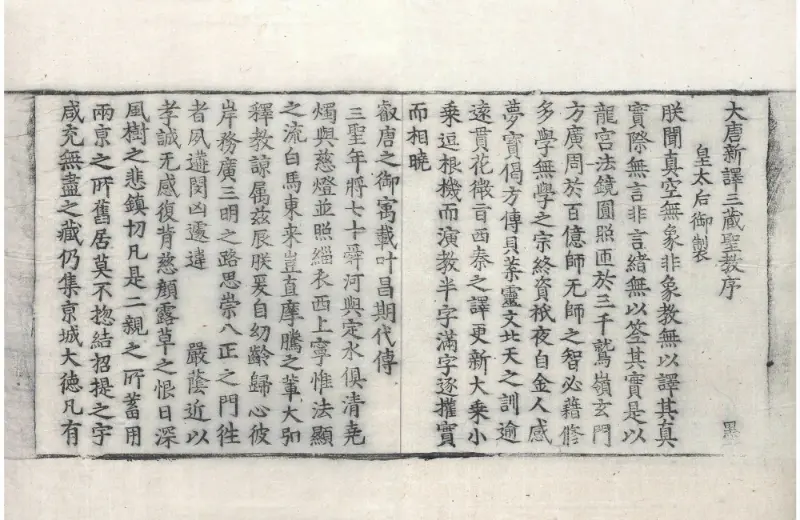 大唐新譯三藏聖教序 墨
皇太后御製
朕聞真空無象非象教無以譯其真
實際無言非言緒無以筌其實是以
龍宮法鏡圓照匝於三千鷲嶺玄門
方廣周於百億師无師之智必藉修
多學無學之宗終資祇夜自金人感
夢寶偈方傳貝葉靈文北天之訓逾
遠貫花微言西秦之譯更新大乘小
乘逗根機而演教半字滿字逐權實
而相曉
叡唐之御寓載叶昌期代傳
三聖年將七十舜河與定水俱清堯
燭與慈燈並照緇衣西上寧惟法顯
之流白馬東来豈直摩騰之輩大弘
釋教諒属茲辰朕爰自幼齡歸心彼
岸務廣三明之路思崇八正之門往
者夙遘閔凶遽違 嚴蔭近以
孝誠无感復背慈顔露草之恨日深
風樹之悲鎮切凡是二親之所蓄用
兩京之所舊居莫不揔結招提之宇
咸充無盡之藏仍集京城大德凡有